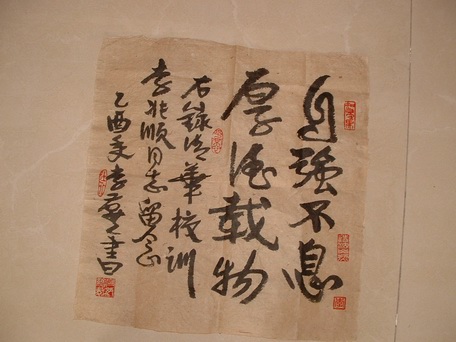 自强不息
厚德载物
右録清華校训
李兆顺同志留念
乙酉冬李书